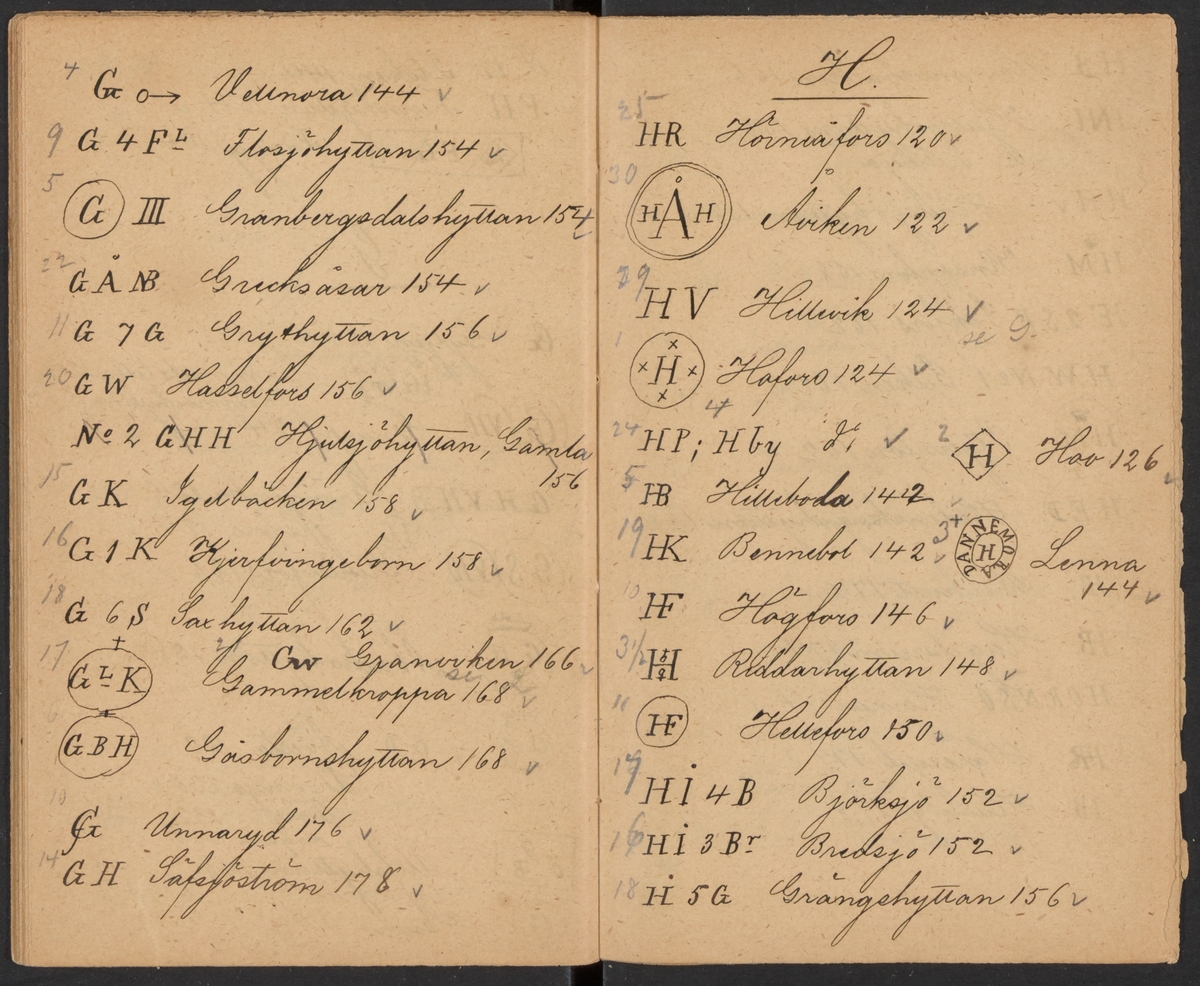 4 G o→ Vettnora 144 ✓
9 G 4 FL Flosjöhyttan 154 ✓
5 G III Granbergsdalshyttan 154 ✓
22 G Å NB Grecksåsar 154 ✓
11 G 7 G Grythyttan 156 ✓
20 G W Hasselfors 156 ✓
No 2 G H H Hjulsjöhyttan, Gamla
156
15 G K Igelbäcken 158 ✓
16 G 1 K Kjerfvingeborn 158 ✓
18 G 6 S Saxhyttan 162 ✓
21 GW Granviken 166 ✓
17 + G L K Gammelkroppa 168 ✓
+ G B H Gåsbornshyttan 168 ✓
10 G Unnaryd 176 ✓
14 G H Säfsjöström 178 ✓
H.
25 HR Hörneåfors 120 ✓
30 H Å H Åviken 122 ✓
29 H V Hillevik 124 ✓
se G.
1 × × H × × Hofors 124 ✓
4
24 H P; H by do ✓
2 H Hoo 126 ✓
5 HB Hilleboda 142
19 HK Bennebol 142 ✓
3+ DANNEMORA H Lenna
144 ✓
10 HF Högfors 146 ✓
3½ H Riddarhyttan 148 ✓
11 HF Hellefors 150 ✓
17 H İ 4 B Björksjö 152 ✓
16 H İ 3 Br Bredsjö 152 ✓
18 Ḣ 5 G Grängshyttan 156 ✓